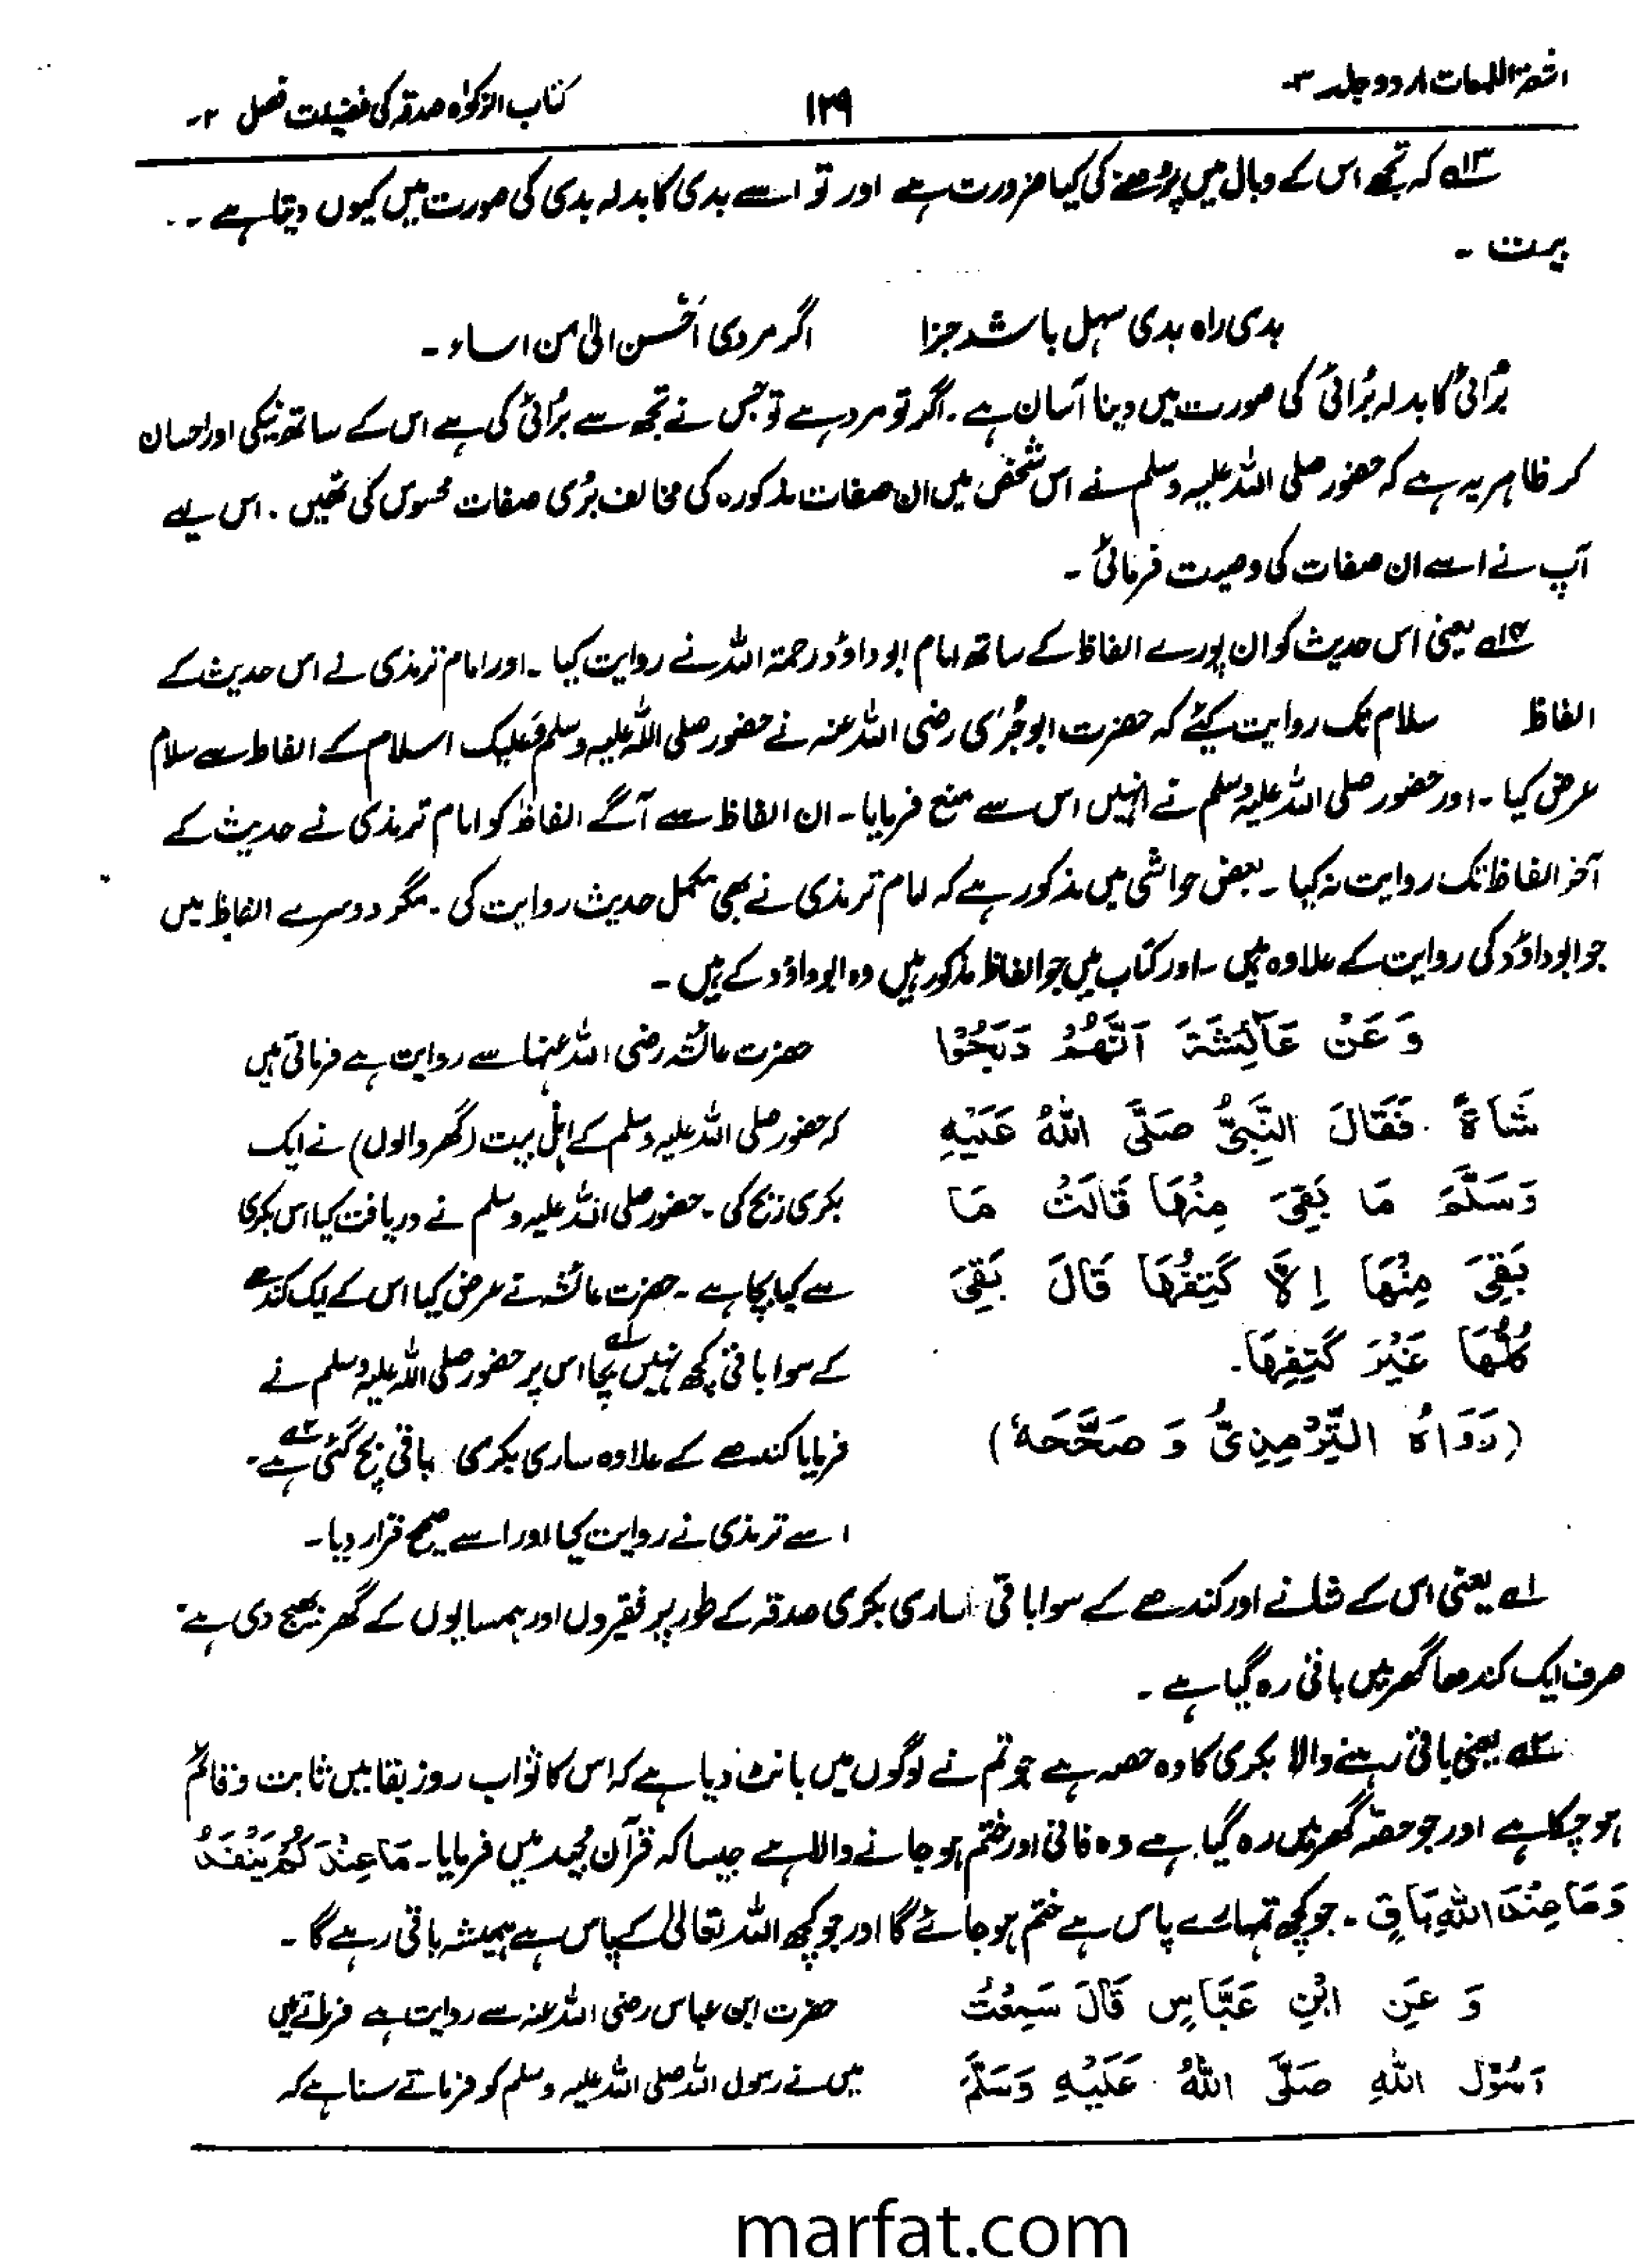 اشعۃ اللمعات اردو جلد ۳-
۱۲۹
کتاب الزکوٰۃ صدقہ کی فضیلت فصل ۲-
۱۳؎ کہ تجھے اس کے وبال میں پڑنے کی کیا ضرورت ہے اور تو اسے بدی کا بدلہ بدی کی صورت میں کیوں دیتا ہے ۔
بیت ۔
بدی راہ بدی سہل باشد جزا اگر مردی اَحْسن الیٰ من اساء ۔
بُرائی کا بدلہ بُرائی کی صورت میں دینا آسان ہے ۔ اگر تو مرد ہے تو جس نے تجھ سے بُرائی کی ہے اس کے ساتھ نیکی اور احسان
کر ظاہر یہ ہے کہ حضور صلی اللہ علیہ وسلم نے اس شخص میں ان صفات مذکورہ کی مخالف بُری صفات محسوس کی تھیں ۔ اس لیے
آپ نے اسے ان صفات کی وصیت فرمائی ۔
۱۴؎ یعنی اس حدیث کو ان پورے الفاظ کے ساتھ امام ابو داؤد رحمۃ اللہ نے روایت کیا ۔ اور امام ترمذی نے اس حدیث کے
الفاظ سلام تک روایت کیئے کہ حضرت ابو جُرَی رضی اللہ عنہ نے حضور صلی اللہ علیہ وسلم فعلیک اسلام کے الفاظ سے سلام
عرض کیا ۔ اور حضور صلی اللہ علیہ وسلم نے انہیں اس سے منع فرمایا ۔ ان الفاظ سے آگے الفاظ کو امام ترمذی نے حدیث کے
آخر الفاظ تک روایت نہ کیا ۔ بعض حواشی میں مذکور ہے کہ امام ترمذی نے بھی مکمل حدیث روایت کی ۔ مگر دوسرے الفاظ میں
جو ابوداؤد کی روایت کے علاوہ ہیں ۔ اور کتاب میں جو الفاظ مذکور ہیں وہ ابوداؤد کے ہیں ۔
وَعَنْ عَآئِشَةَ اَنَّهُمْ ذَبَحُوْا
شَاةً فَقَالَ النَّبِيُّ صَلَّى اللهُ عَلَيْهِ
وَسَلَّمَ مَا بَقِىَ مِنْهَا قَالَتْ مَا
بَقِىَ مِنْهَا اِلَّا كَتِفُهَا قَالَ بَقِىَ
كُلُّهَا غَيْرَ كَتِفِهَا.
(رَوَاهُ التِّرْمِذِىُّ وَ صَحَّحَهٗ)
حضرت عائشہ رضی اللہ عنہا سے روایت ہے فرماتی ہیں
کہ حضور صلی اللہ علیہ وسلم کے اہل بیت (گھر والوں) نے ایک
بکری ذبح کی ۔ حضور صلی اللہ علیہ وسلم نے دریافت کیا اس بکری
سے کیا بچا ہے ۔ حضرت عائشہ نے عرض کیا اس کے ایک کندھے
کے سوا باقی کچھ نہیں بچا ۱؎ اس پر حضور صلی اللہ علیہ وسلم نے
فرمایا کندھے کے علاوہ ساری بکری باقی بچ گئی ہے ۲؎ ۔
اسے ترمذی نے روایت کیا اور اسے صحیح قرار دیا ۔
۱؎ یعنی اس کے شانے اور کندھے کے سوا باقی ساری بکری صدقہ کے طور پر فقیروں اور ہمسایوں کے گھر بھیج دی ہے ۔
صرف ایک کندھا گھر میں باقی رہ گیا ہے ۔
۲؎ یعنی باقی رہنے والا بکری کا وہ حصہ ہے جو تم نے لوگوں میں بانٹ دیا ہے کہ اس کا ثواب روز بقا میں ثابت و قائم
ہو چکا ہے اور جو حصّہ گھر میں رہ گیا ہے وہ فانی اور ختم ہو جانے والا ہے جیسا کہ قرآن مجید میں فرمایا ۔ مَا عِنْدَكُمْ يَنْفَدُ
وَمَا عِنْدَ اللهِ بَاقٍ ۔ جو کچھ تمہارے پاس ہے ختم ہو جائے گا اور جو کچھ اللہ تعالیٰ کے پاس ہے ہمیشہ باقی رہے گا ۔
وَ عَنِ ابْنِ عَبَّاسٍ قَالَ سَمِعْتُ
رَسُوْلَ اللهِ صَلَّى اللهُ عَلَيْهِ وَسَلَّمَ
حضرت ابن عباس رضی اللہ عنہ سے روایت ہے فرماتے ہیں
میں نے رسول اللہ صلی اللہ علیہ وسلم کو فرماتے سنا ہے کہ
marfat.com